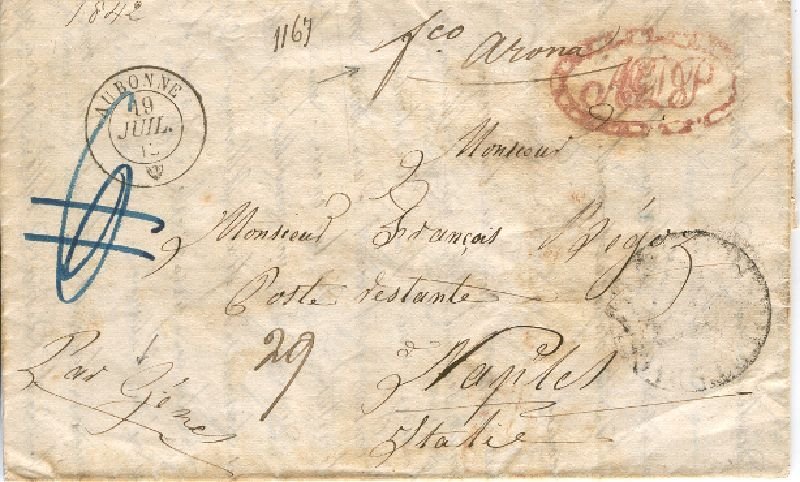 1842
1167
fco Arona
AUBONNE
19
JUIL.
Monsieur
Monsieur François
Poste restante
29
à Naples
Par Gênes
Italie